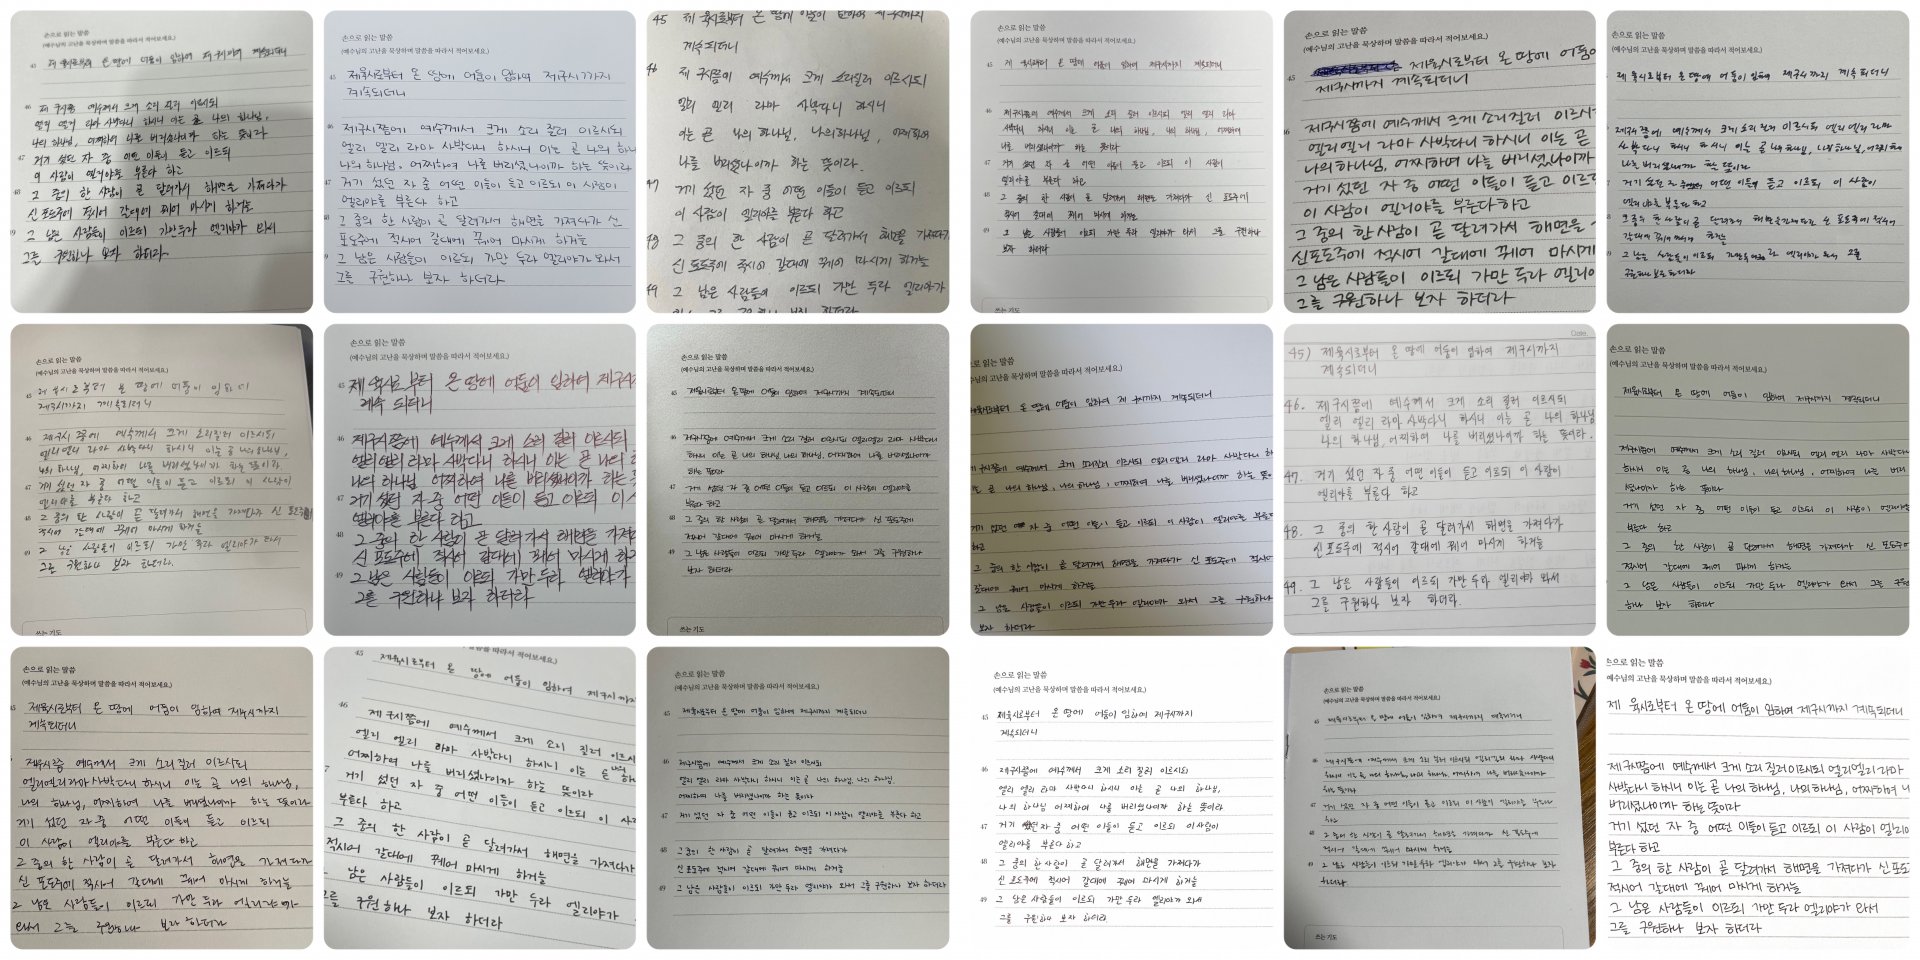 손으로 읽는 말씀
(예수님의 고난을 묵상하며 말씀을 따라서 적어보세요.)
45 제 육시로부터 온 땅에 어둠이 임하여 제 구시까지 계속되더니
46 제 구시쯤 예수께서 크게 소리 질러 이르시되
엘리 엘리 라마 사박다니 하시니 이는 곧 나의 하나님,
나의 하나님, 어찌하여 나를 버리셨나이까 하는 뜻이라
47 거기 섰던 자 중 어떤 이들이 듣고 이르되
이 사람이 엘리야를 부른다 하고
48 그 중의 한 사람이 곧 달려가서 해면을 가져다가
신 포도주에 적시어 갈대에 꿰어 마시게 하거늘
49 그 남은 사람들이 이르되 가만 두라 엘리야가 와서
그를 구원하나 보자 하더라.
손으로 읽는 말씀
(예수님의 고난을 묵상하며 말씀을 따라서 적어보세요.)
45 제육시로부터 온 땅에 어둠이 임하여 제구시까지
계속되더니
46 제구시쯤에 예수께서 크게 소리 질러 이르시되
엘리 엘리 라마 사박다니 하시니 이는 곧 나의 하나님
나의 하나님. 어찌하여 나를 버리셨나이까 하는 뜻이라
47 거기 섰던 자 중 어떤 이들이 듣고 이르되 이 사람이
엘리야를 부른다 하고
48 그 중의 한 사람이 곧 달려가서 해면을 가져다가 신
포도주에 적시어 갈대에 꿰어 마시게 하거늘
그 남은 사람들이 이르되 가만 두라 엘리야가 와서
그를 구원하나 보자 하더라.
45 제 육시로부터 온 땅에 어둠이 임하여 제구시까지
계속되더니
46 제 구시쯤에 예수께서 크게 소리질러 이르시되
엘리 엘리 라마 사박다니 하시니
이는 곧 나의 하나님, 나의하나님, 어찌하여
나를 버리셨나이까 하는 뜻이라.
47 거기 섰던 자 중 어떤 이들이 듣고 이르되
이 사람이 엘리야를 부른다 하고
48 그 중의 한 사람이 곧 달려가서 해면을 가져다가
신 포도주에 적시어 갈대에 꿰어 마시게 하거늘
49 그 남은 사람들이 이르되 가만 두라 엘리야가
손으로 읽는 말씀
(예수님의 고난을 묵상하며 말씀을 따라서 적어보세요.)
45 제 육시로부터 온 땅에 어둠이 임하여 제구시까지 계속되더니
46 제구시쯤에 예수께서 크게 소리 질러 이르시되 엘리 엘리 라마
사박다니 하시니 이는 곧 나의 하나님, 나의 하나님, 어찌하여
나를 버리셨나이까 하는 뜻이라
47 거기 섰던 자 중 어떤 이들이 듣고 이르되 이 사람이
엘리야를 부른다 하고
48 그 중의 한 사람이 곧 달려가서 해면을 가져다가 신 포도주에
적시어 갈대에 꿰어 마시게 하거늘
49 그 남은 사람들이 이르되 가만 두라 엘리야가 와서 그를 구원하나
보자 하더라
쓰는 기도
손으로 읽는 말씀
(예수님의 고난을 묵상하며 말씀을 따라서 적어보세요.)
45 제육시로부터 온 땅에 어둠
제구시까지 계속되더니
제구시쯤에 예수께서 크게 소리질러 이르시
엘리엘리 라마 사박다니 하시니 이는 곧
나의하나님, 어찌하여 나를 버리셨나이까
거기 섰던 자 중 어떤 이들이 듣고 이르되
이 사람이 엘리야를 부른다하고
그 중의 한 사람이 곧 달려가서 해면을
신포도주에 적시어 갈대에 꿰어 마시게
그 남은 사람들이 이르되 가만 두라 엘리야
그를 구원하나 보자 하더라
손으로 읽는 말씀
(예수님의 고난을 묵상하며 말씀을 따라서 적어보세요.)
제 육시로부터 온 땅에 어둠이 임하여 제구시까지 계속되더니
제구시쯤에 예수께서 크게 소리질러 이르시되 엘리엘리 라마
거기 섰던 자 어떤 이들이 듣고 이르되 이 사람이
엘리야를 부른다 하고
갈대에 꿰어 마시게 하거늘
구원하나 보자 하더라
손으로 읽는 말씀
(예수님의 고난을 묵상하며 말씀을 따라서 적어보세요.)
45 제 육시로부터 온 땅에 어둠이 임하여
제구시까지 계속되더니
46 제구시 쯤에 예수께서 크게 소리질러 이르시되
엘리엘리 라마 사박다니 하시니 이는 곧 나의 하나님,
나의 하나님, 어찌하여 나를 버리셨나이까 하는 뜻이라.
47 거기 섰던 자 중 어떤 이들이 듣고 이르되 이 사람이
엘리야를 부른다 하고
48 그 중의 한 사람이 곧 달려가서 해면을 가져다가 신 포도주에
적시어 갈대에 꿰어 마시게 하거늘
49 그 남은 사람들이 이르되 가만 두라 엘리야가 와서
그를 구원하나 보자 하더라.
쓰는 기도
손으로 읽는 말씀
(예수님의 고난을 묵상하며 말씀을 따라서 적어보세요.)
45 제 육시로부터 온 땅에 어둠이 임하여 제구시
계속 되더니
46 제구시쯤에 예수께서 크게 소리 질러 이르시되
엘리엘리 라마 사박다니 하시니 이는 곧 나의
나의 하나님 어찌하여 나를 버리셨나이까 하는
47 거기 섰던 자 중 어떤 이들이 듣고 이르되 이
엘리야를 부른다 하고
48 그 중의 한 사람이 곧 달려가서 해면을 가져
신 포도주에 적시어 갈대에 꿰어 마시게 하거
49 그 남은 사람들이 이르되 가만 두라 엘리야가
그를 구원하나 보자 하더라
손으로 읽는 말씀
(예수님의 고난을 묵상하며 말씀을 따라서 적어보세요.)
45 제육시로부터 온 땅에 어둠이 임하여 제구시까지 계속되더니
46 제구시쯤에 예수께서 크게 소리 질러 이르시되 엘리엘리 라마 사박다니
하시니 이는 곧 나의 하나님 나의 하나님, 어찌하여 나를 버리셨나이까
하는 뜻이라
47 거기 섰던 자 중 어떤 이들이 듣고 이르되 이 사람이 엘리야를
부른다 하고
48 그 중의 한 사람이 곧 달려가서 해면을 가져다가 신 포도주에
적시어 갈대에 꿰어 마시게 하거늘
49 그 남은 사람들이 이르되 가만 두라 엘리야가 와서 그를 구원하나
보자 하더라
쓰는 기도
로 읽는 말씀
수님의 고난을 묵상하며 말씀을 따라서 적어보세요.)
육시로부터 온 땅에 어둠이 임하여 제 구시까지 계속되더니
제 구시쯤에 예수께서 크게 소리질러 이르시되 엘리 엘리 라마 사박다니 하
는 곧 나의 하나님, 나의 하나님, 어찌하여 나를 버리셨나이까 하는 뜻
거기 섰던 자 중 어떤 이들이 듣고 이르되 이 사람이 엘리야를 부른다
하고
그 중의 한 사람이 곧 달려가서 해면을 가져다가 신 포도주에 적시어
갈대에 꿰어 마시게 하거늘
그 남은 사람들이 이르되 가만 두라 엘리야가 와서 그를 구원하나
보자 하더라
45) 제육시로부터 온 땅에 어둠이 임하여 제구시까지
계속되더니
46. 제구시쯤에 예수께서 크게 소리 질러 이르시되
엘리 엘리 라마 사박다니 하시니 이는 곧 나의 하나님
나의 하나님, 어찌하여 나를 버리셨나이까 하는 뜻이라.
47. 거기 섰던 자 중 어떤 이들이 듣고 이르되 이 사람이
엘리야를 부른다 하고
48. 그 중의 한 사람이 곧 달려가서 해면을 가져다가
신 포도주에 적시어 갈대에 꿰어 마시게 하거늘
49. 그 남은 사람들이 이르되 가만 두라 엘리야가 와서
그를 구원하나 보자 하더라.
손으로 읽는 말씀
(예수님의 고난을 묵상하며 말씀을 따라서 적어보세요.)
제육시로부터 온 땅에 어둠이 임하여 제구시까지 계속되더니
제구시쯤에 예수께서 크게 소리 질러 이르시되 엘리 엘리 라마 사박다니
하시니 이는 곧 나의 하나님, 나의 하나님, 어찌하여 나를 버리
셨나이까 하는 뜻이라
거기 섰던 자 중 어떤 이들이 듣고 이르되 이 사람이 엘리야를
부른다 하고
그 중의 한 사람이 곧 달려가서 해면을 가져다가 신 포도주에
적시어 갈대에 꿰어 마시게 하거늘
그 남은 사람들이 이르되 가만 두라 엘리야가 와서 그를 구원
하나 보자 하더라
손으로 읽는 말씀
(예수님의 고난을 묵상하며 말씀을 따라서 적어보세요.)
제육시로부터 온 땅에 어둠이 임하여 제구시까지
계속되더니
제구시쯤 예수께서 크게 소리 질러 이르시되
엘리엘리라마 사박다니 하시니 이는 곧 나의 하나님,
나의 하나님, 어찌하여 나를 버리셨나이까 하는 뜻이라
거기 섰던 자 중 어떤 이들이 듣고 이르되
이 사람이 엘리야를 부른다 하고
그 중의 한 사람이 곧 달려가서 해면을 가져다가
신 포도주에 적시어 갈대에 꿰어 마시게 하거늘
그 남은 사람들이 이르되 가만 두라 엘리야가
와서 그를 구원하나 보자 하더라
45 제육시로부터 온 땅에 어둠이 임하여 제구시까지
46 제구시쯤에 예수께서 크게 소리 질러 이르시
엘리 엘리 라마 사박다니 하시니 이는 곧 나의
어찌하여 나를 버리셨나이까 하는 뜻이라
거기 섰던 자 중 어떤 이들이 듣고 이르되 이 사
부른다 하고
그 중의 한 사람이 곧 달려가서 해면을 가져다가
적시어 갈대에 꿰어 마시게 하거늘
남은 사람들이 이르되 가만 두라 엘리야가
그를 구원하나 보자 하더라
손으로 읽는 말씀
(예수님의 고난을 묵상하며 말씀을 따라서 적어보세요.)
45 제육시로부터 온 땅에 어둠이 임하여 제구시까지 계속되더니
46 제구시쯤에 예수께서 크게 소리 질러 이르시되
엘리 엘리 라마 사박다니 하시니 이는 곧 나의 하나님, 나의 하나님,
어찌하여 나를 버리셨나이까 하는 뜻이라
47 거기 섰던 자 중 어떤 이들이 듣고 이르되 이 사람이 엘리야를 부른다 하고
48 그 중의 한 사람이 곧 달려가서 해면을 가져다가
신 포도주에 적시어 갈대에 꿰어 마시게 하거늘
49 그 남은 사람들이 이르되 가만 두라 엘리야가 와서 그를 구원하나 보자 하더라
손으로 읽는 말씀
(예수님의 고난을 묵상하며 말씀을 따라서 적어보세요.)
45 제육시로부터 온 땅에 어둠이 임하여 제구시까지
계속되더니
46 제구시쯤에 예수께서 크게 소리 질러 이르시되
엘리 엘리 라마 사박다니 하시니 이는 곧 나의 하나님,
나의 하나님 어찌하여 나를 버리셨나이까 하는 뜻이라
47 거기 섰던 자 중 어떤 이들이 듣고 이르되 이 사람이
엘리야를 부른다 하고
48 그 중의 한 사람이 곧 달려가서 해면을 가져다가
신 포도주에 적시어 갈대에 꿰어 마시게 하거늘
49 그 남은 사람들이 이르되 가만 두라 엘리야가 와서
그를 구원하나 보자 하더라.
손으로 읽는 말씀
(예수님의 고난을 묵상하며 말씀을 따라서 적어보세요.)
45 제육시로부터 온 땅에 어둠이 임하여 제구시까지 계속되더니
46 제구시쯤에 예수께서 크게 소리 질러 이르시되 엘리 엘리 라마 사박다니
하는 뜻이라
47 거기 섰던 자 중 어떤 이들이 듣고 이르되 이 사람이 엘리야를 부른다
하고
48 그 중의 한 사람이 곧 달려가서 해면을 가져다가 신 포도주에
적시어 갈대에 꿰어 마시게 하거늘
49 그 남은 사람들이 이르되 가만 두라 엘리야가 와서 그를 구원하나 보자
하더라
쓰는 기도
손으로 읽는 말씀
예수님의 고난을 묵상하며 말씀을 따라서 적어보세요.)
제 육시로부터 온 땅에 어둠이 임하여 제구시까지 계속되더니
제구시쯤에 예수께서 크게 소리 질러 이르시되 엘리엘리 라마
사박다니 하시니 이는 곧 나의 하나님, 나의 하나님, 어찌하여 나
버리셨나이까 하는 뜻이라
거기 섰던 자 중 어떤 이들이 듣고 이르되 이 사람이 엘리야
부른다 하고
그 중의 한 사람이 곧 달려가서 해면을 가져다가 신 포도
적시어 갈대에 꿰어 마시게 하거늘
그 남은 사람들이 이르되 가만 두라 엘리야가 와서
그를 구원하나 보자 하더라